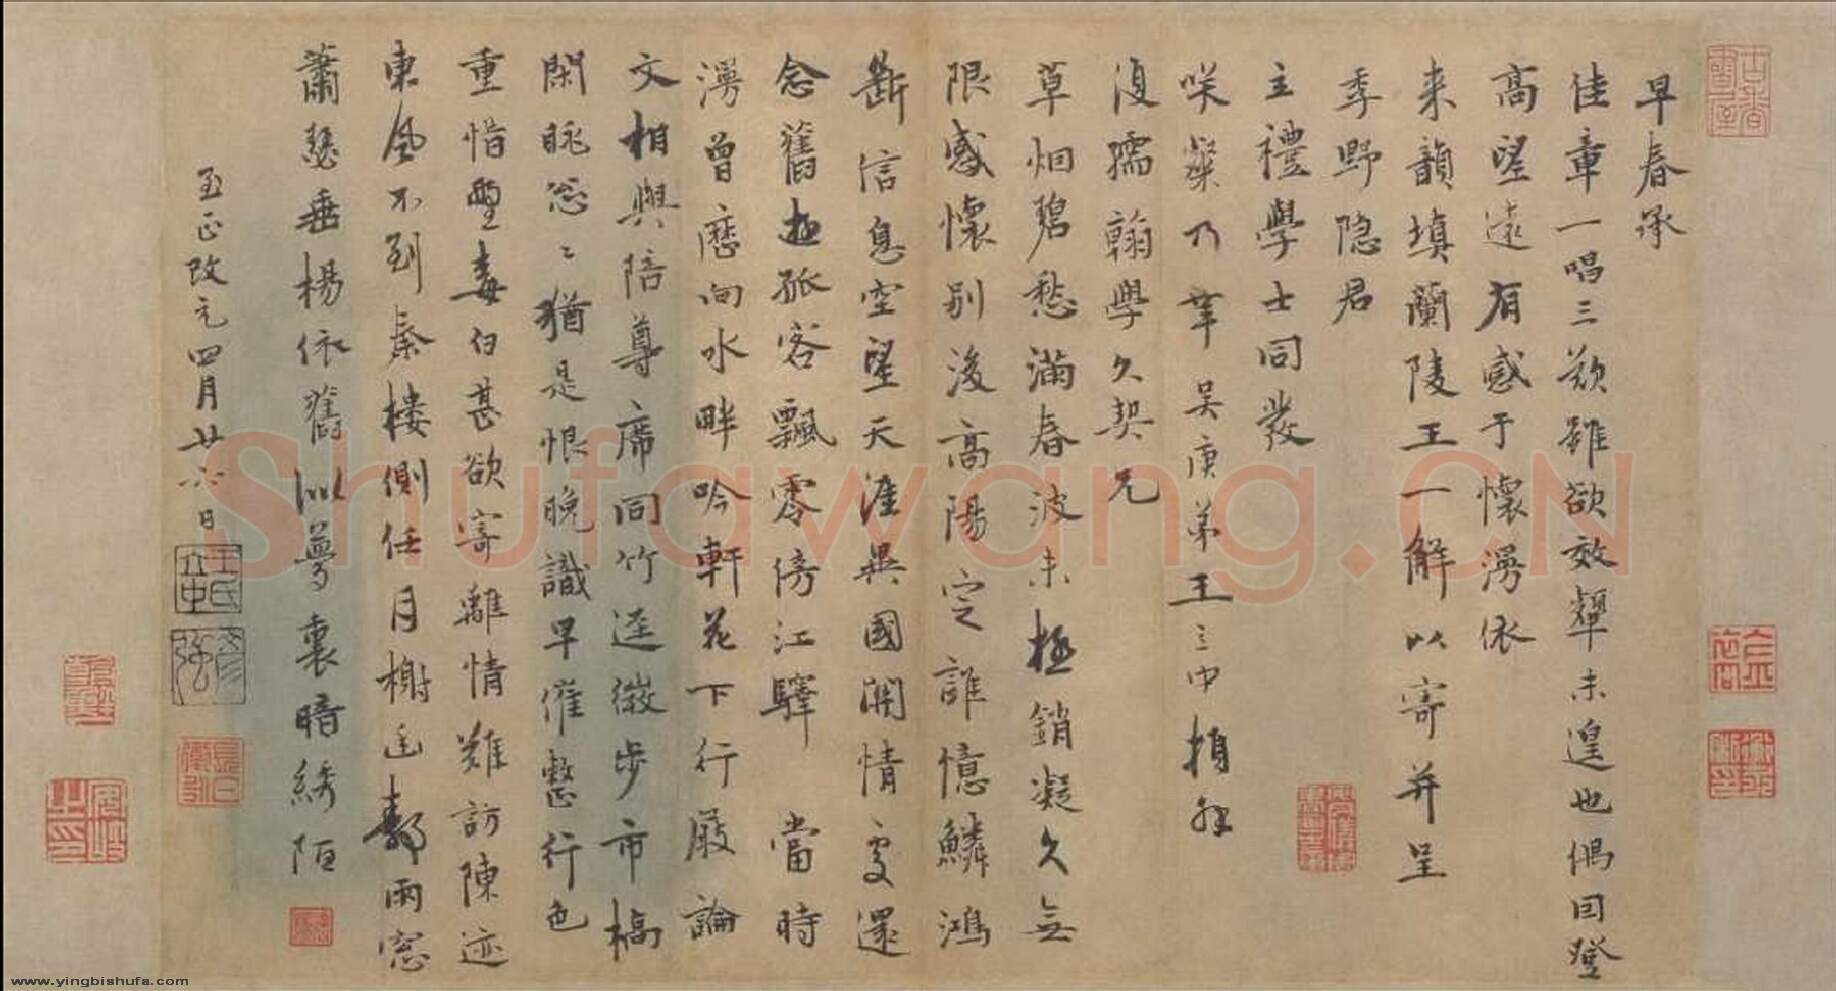 早春承
佳章一唱三歎雖欲效顰未遑也偶因登
高望遠有感于懷漫依
来韻填蘭陵王一解以寄并呈
季野隐君
主禮學士同發
咲粲乃幸吴庚弟王立中頓拜
復孺翰學久契兄
草烟碧愁滿春波未極銷凝久無
限感懷别後高陽定誰憶鱗鴻
斷信息空望天涯異國關情處還
念舊遊孤客飄零傍江驛 當時
漫曾歷向水畔吟軒花下行廚論
文相與陪尊席同竹逕微步市橋
閑眺忩〻猶是恨晚識早催整行色
重惜鬢白甚欲寄離情難訪陳迹
東風不到秦樓側任月榭遥静雨窓
蕭瑟垂楊依舊似夢裏暗綉陌
至正改元四月廿六日
王氏立中
彦強
Shufawang.CN
www.yingbishufa.com